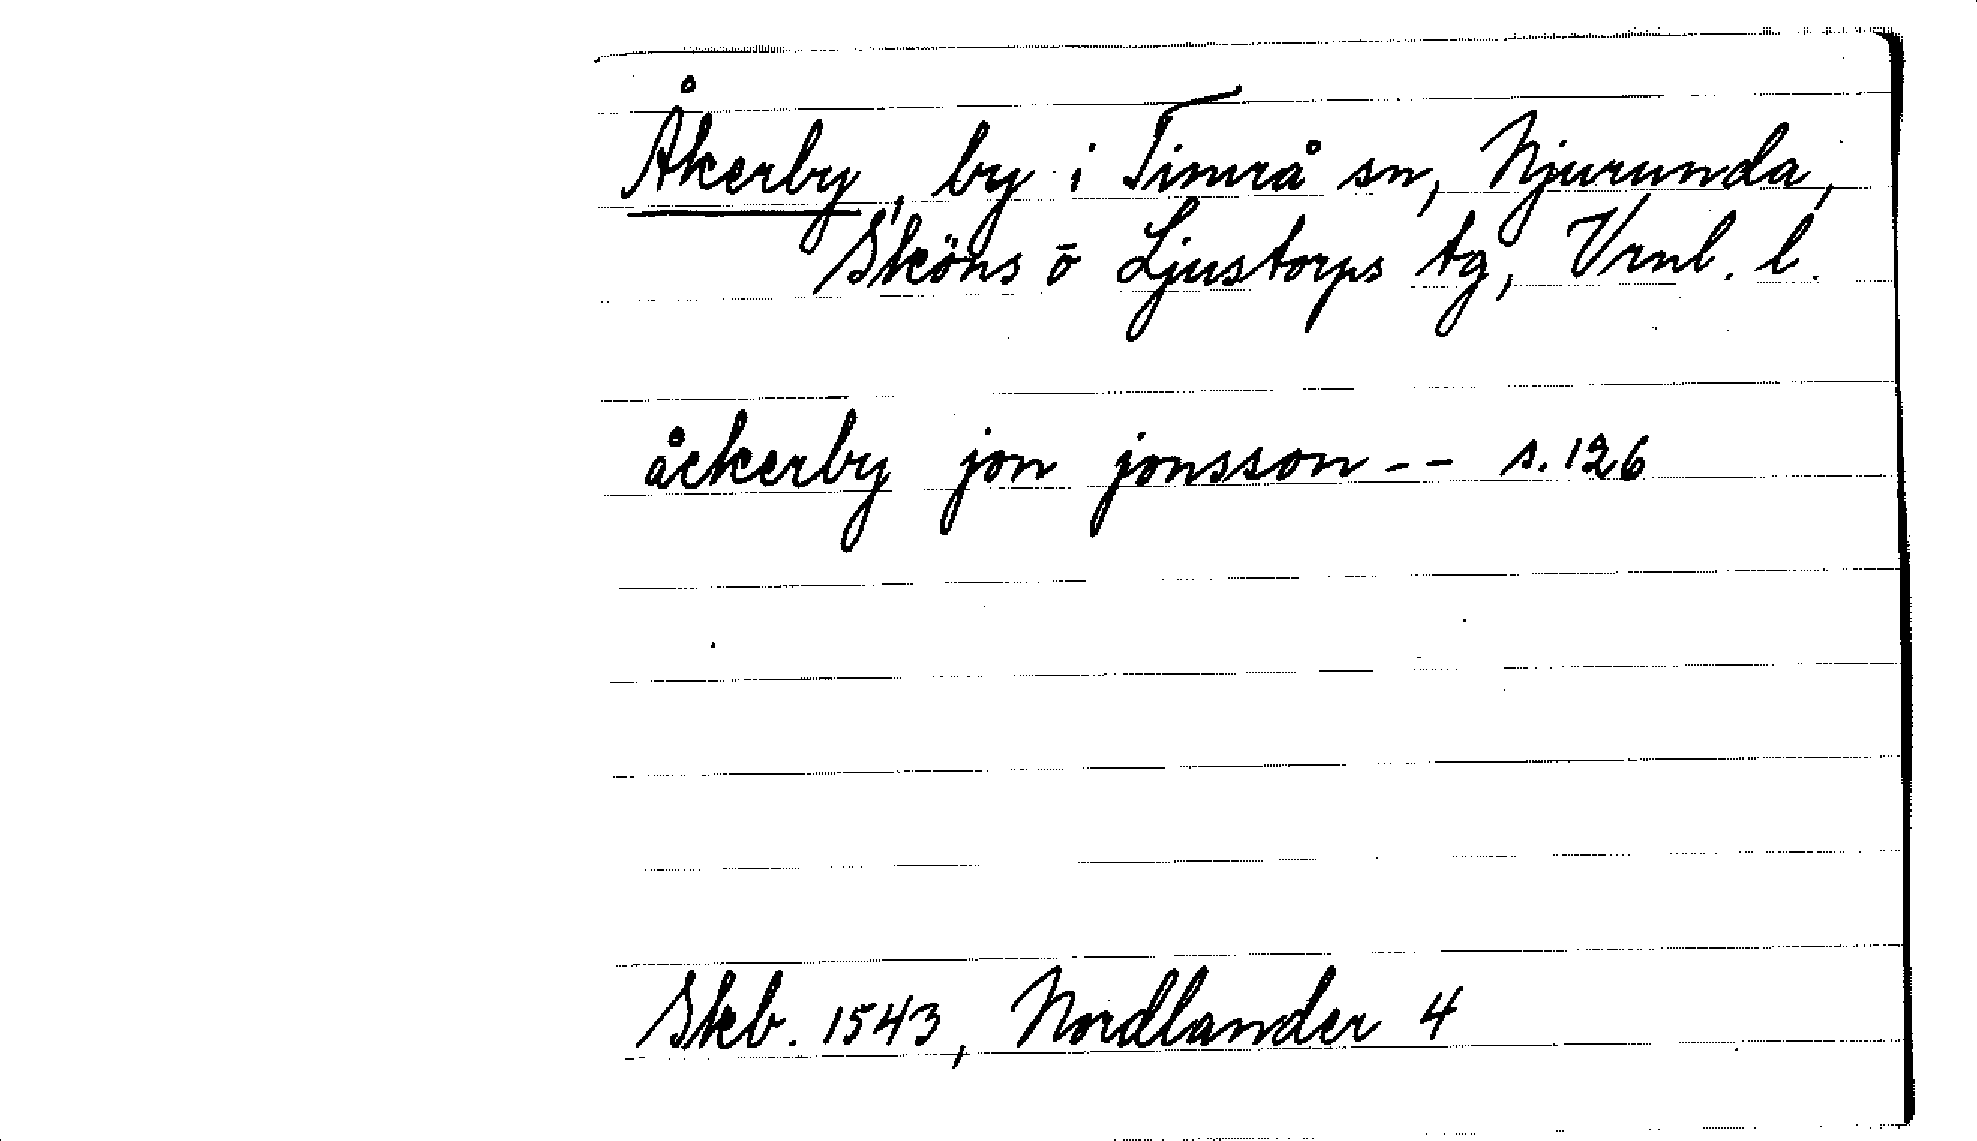 Åkerby, by i Timrå sn, Njurunda,
Sköns o Ljustorps tg, Vrnl. l.
åckerby jon jonsson -- s. 126
Skb. 1543, Nordlander 4